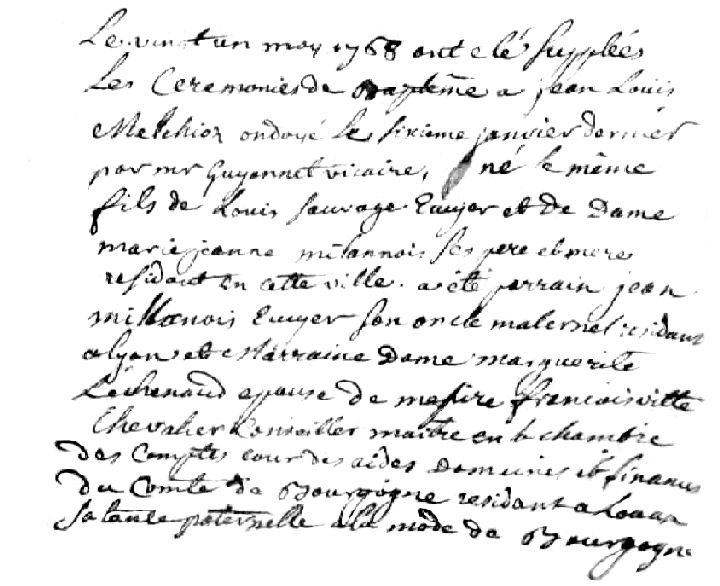 Le vingt un may 1768 ont eté Suppleés
Les Ceremonies de Baptême a jean Louis
Melchior ondoyé Le sixieme janvier dernier
par mr Guyonnet vicaire, né le même
fils de Louis Sauvage Ecuyer et de Dame
marie jeanne milannois Ses pere et mere
residant en cette ville. a été parrain jean
millanois Ecuyer son oncle maternel residant
a lyon et Marraine Dame marguerite
epouse de messire francois vitte
Chevalier Conseiller maitre en la chambre
des Comptes cour des aides Domaines et finances
du Comté de Bourgogne residant a
Sa tante paternelle a la mode de Bourgogne